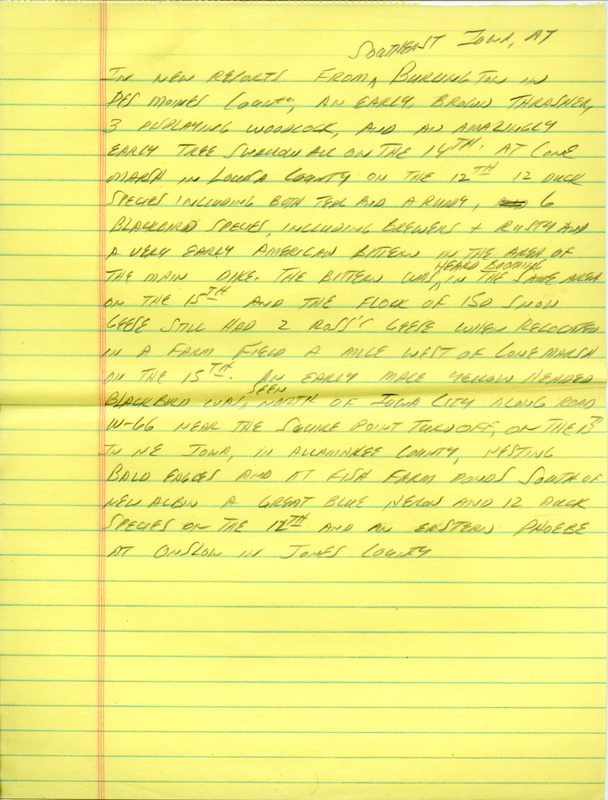 SOUTHEAST IOWA, AT
IN NEW REPORTS FROM, BURLINGTON IN
DES MOINES COUNTY, AN EARLY BROWN THRASHER,
3 DISPLAYING WOODCOCK, AND AN AMAZINGLY
EARLY TREE SWALLOW ALL ON THE 14TH. AT CONE
MARSH IN LOUISA COUNTY ON THE 12TH 12 DUCK
SPECIES INCLUDING BOTH TEAL AND A RUDDY, 6
BLACKBIRD SPECIES, INCLUDING BREWERS + RUSTY AND
A VERY EARLY AMERICAN BITTERN IN THE AREA OF
HEARD BOOMING
THE MAIN DIKE. THE BITTERN WAS IN THE SAME AREA
ON THE 15TH AND THE FLOCK OF 150 SNOW
GEESE STILL HAD 2 ROSS'S GEESE WHEN RELOCATED
IN A FARM FIELD A MILE WEST OF CONE MARSH
ON THE 15TH. AN EARLY MALE YELLOW HEADED
SEEN
BLACKBIRD WAS NORTH OF IOWA CITY ALONG ROAD
W-66 NEAR THE SQUIRE POINT TURNOFF, ON THE
IN NE IOWA, IN ALLAMAKEE COUNTY, NESTING
BALD EAGLES AND AT FISH FARM PONDS SOUTH OF
NEW ALBIN A GREAT BLUE HERON AND 12 DUCK
SPECIES ON THE 12TH AND AN EASTERN PHOEBE
AT ONSLOW IN JONES COUNTY